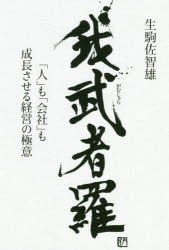 生駒佐智雄
我武者羅
がむしゃら
「人」も「会社」も
成長させる経営の極意